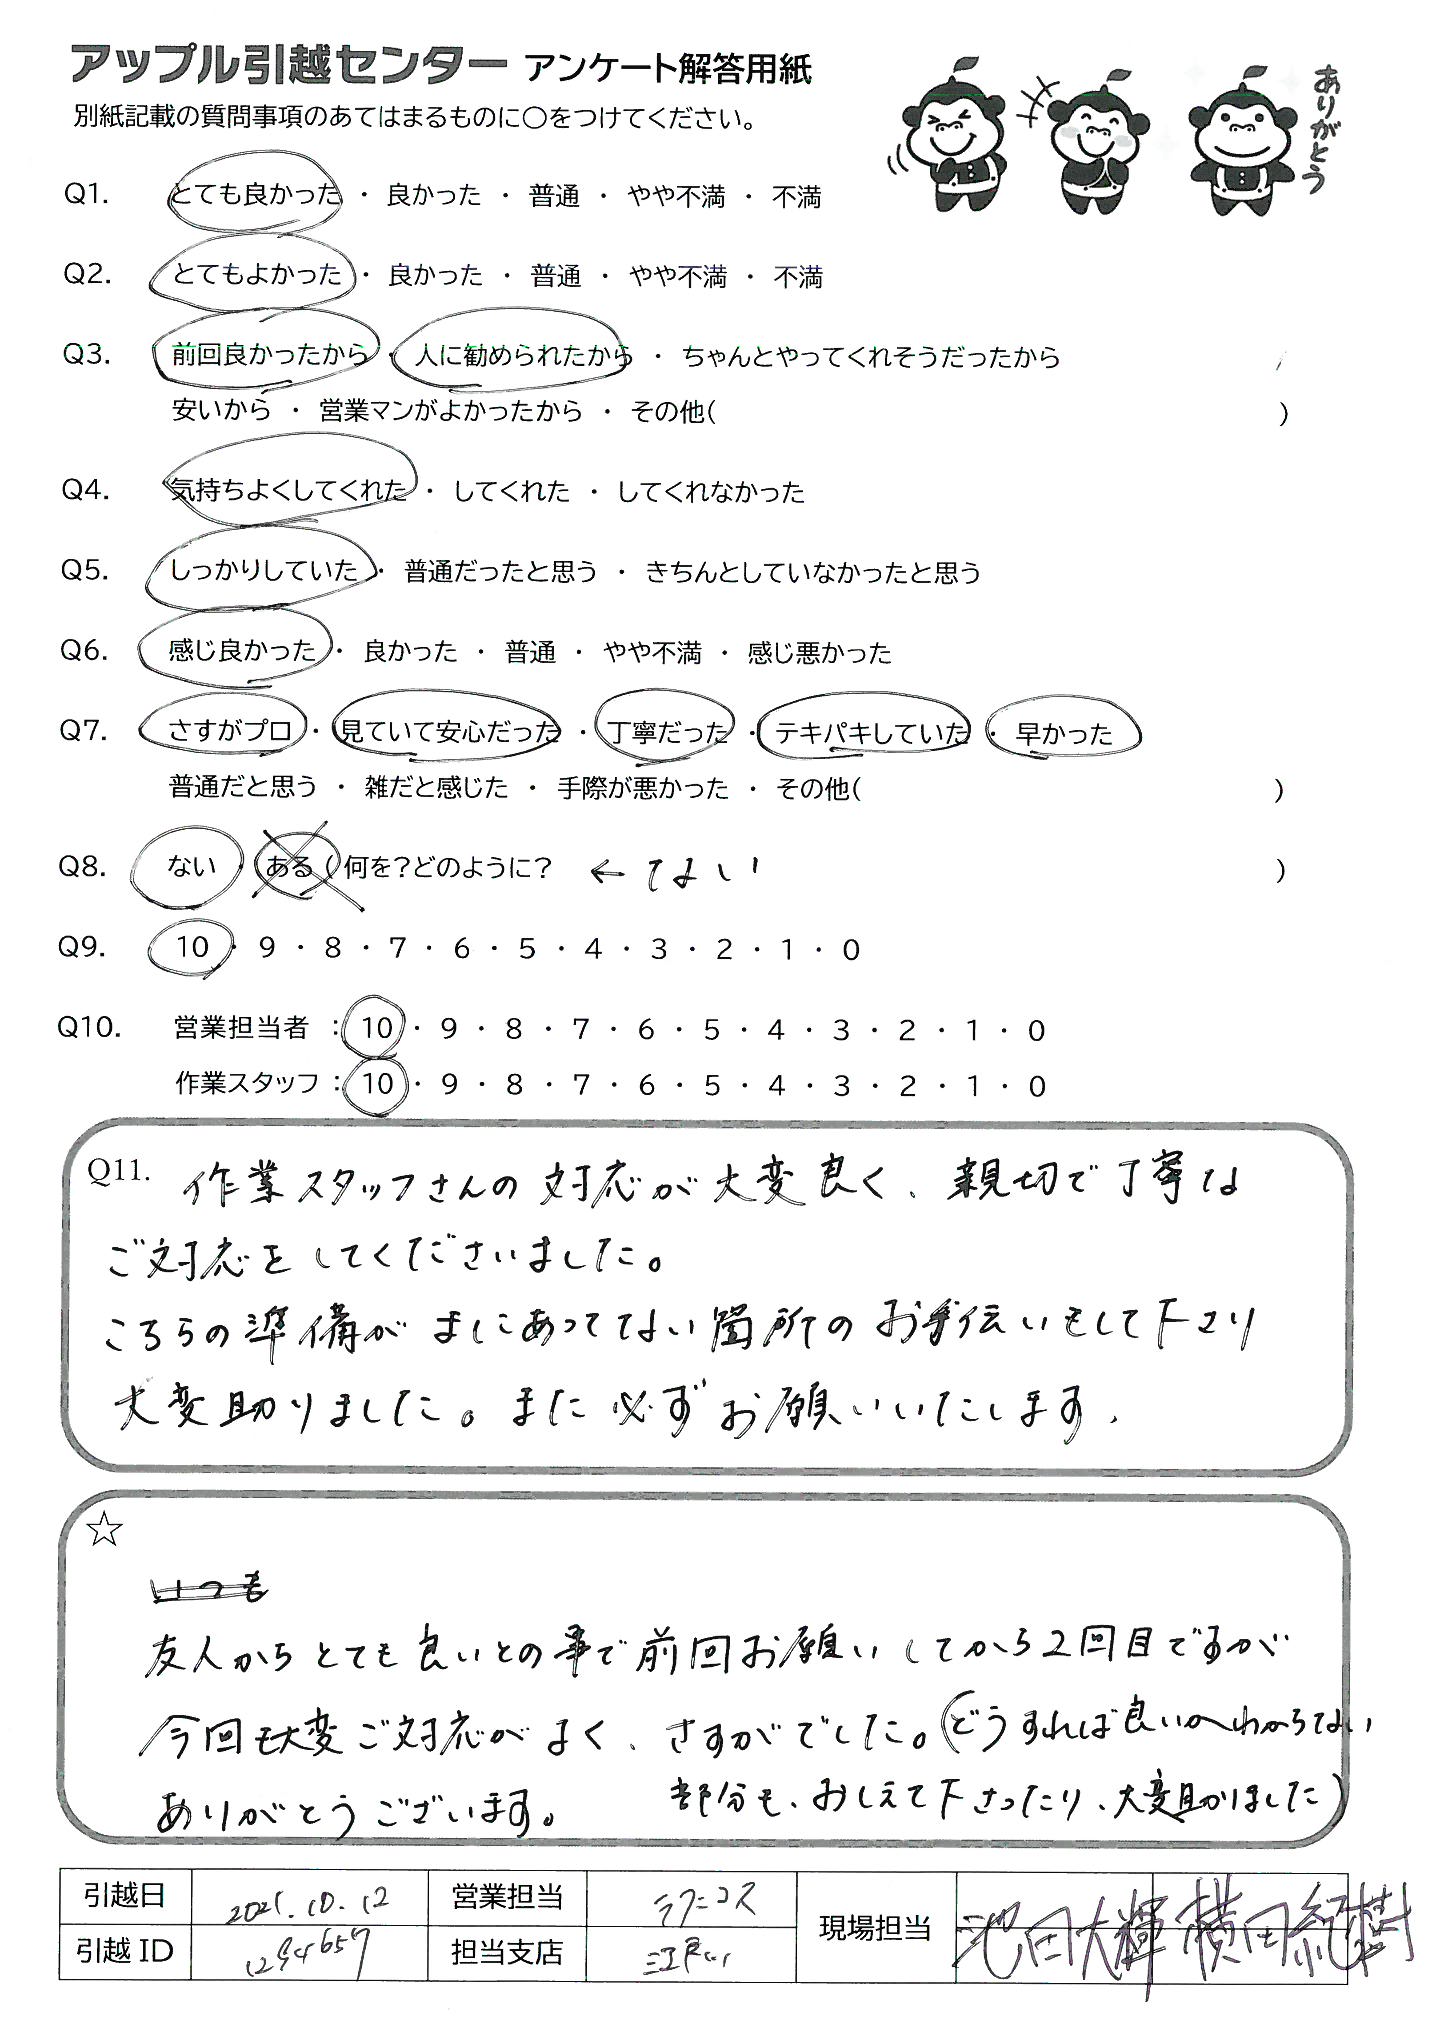 アップル引越センター アンケート解答用紙
別紙記載の質問事項のあてはまるものに○をつけてください。
ありがとう
Q1. とても良かった ・ 良かった ・ 普通 ・ やや不満 ・ 不満
Q2. とてもよかった ・ 良かった ・ 普通 ・ やや不満 ・ 不満
Q3. 前回良かったから ・ 人に勧められたから ・ ちゃんとやってくれそうだったから
安いから ・ 営業マンがよかったから ・ その他( )
Q4. 気持ちよくしてくれた ・ してくれた ・ してくれなかった
Q5. しっかりしていた ・ 普通だったと思う ・ きちんとしていなかったと思う
Q6. 感じ良かった ・ 良かった ・ 普通 ・ やや不満 ・ 感じ悪かった
Q7. さすがプロ ・ 見ていて安心だった ・ 丁寧だった ・ テキパキしていた ・ 早かった
普通だと思う ・ 雑だと感じた ・ 手際が悪かった ・ その他( )
Q8. ない ・ ある ( 何を?どのように? ← ない )
Q9. 10 ・ 9 ・ 8 ・ 7 ・ 6 ・ 5 ・ 4 ・ 3 ・ 2 ・ 1 ・ 0
Q10. 営業担当者 : 10 ・ 9 ・ 8 ・ 7 ・ 6 ・ 5 ・ 4 ・ 3 ・ 2 ・ 1 ・ 0
作業スタッフ : 10 ・ 9 ・ 8 ・ 7 ・ 6 ・ 5 ・ 4 ・ 3 ・ 2 ・ 1 ・ 0
Q11. 作業スタッフさんの対応が大変良く、親切で丁寧な
ご対応をしてくださいました。
こちらの準備がまにあってない箇所のお手伝いもして下さり
大変助かりました。また必ずお願いいたします、
☆
いつも
友人からとても良いとの事で前回お願いしてから2回目ですが
今回も大変ご対応がよく、さすがでした。(どうすれば良いかわからない
ありがとうございます。 部分も、おしえて下さったり、大変助かりました)
引越日 10.12 営業担当 現場担当 池田大輝 横田紀樹
引越ID 担当支店